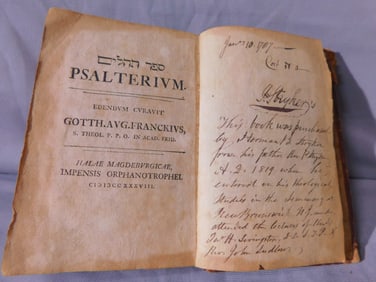 ספר תהלים
PSALTERIVM.
EDENDVM CVRAVIT
GOTTH. AVG. FRANCKIVS,
S. THEOL. P. P. O. IN ACAD. FRID.
HALAE MAGDEBVRGICAE,
IMPENSIS ORPHANOTROPHEI.
CIƆIƆCCXXXVIII.
This book was purchased
by
from his father
A.D. 1819 when he
entered on his Theological
Studies in the Seminary at
New Brunswick NJ, and
attended the lectures of
H. Livingston,
Rev. John Ludlow